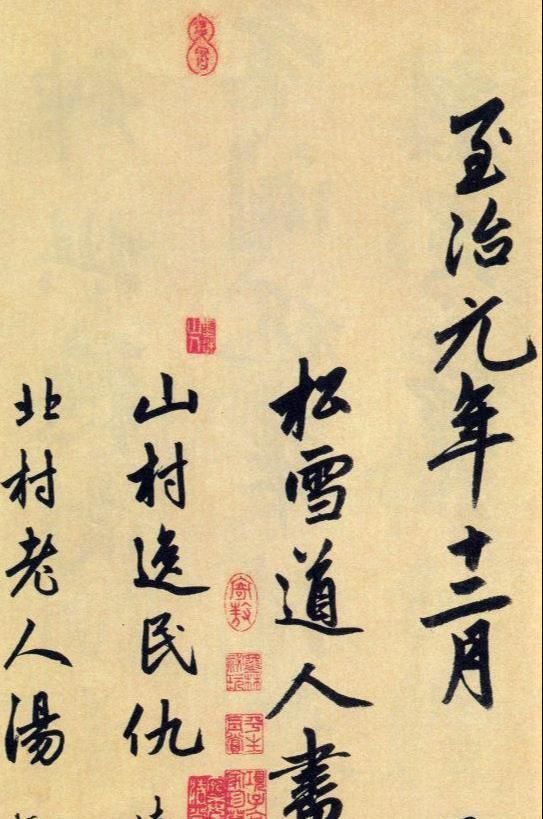 至治元年十二月
松雪道人書
山村逸民仇
北村老人湯